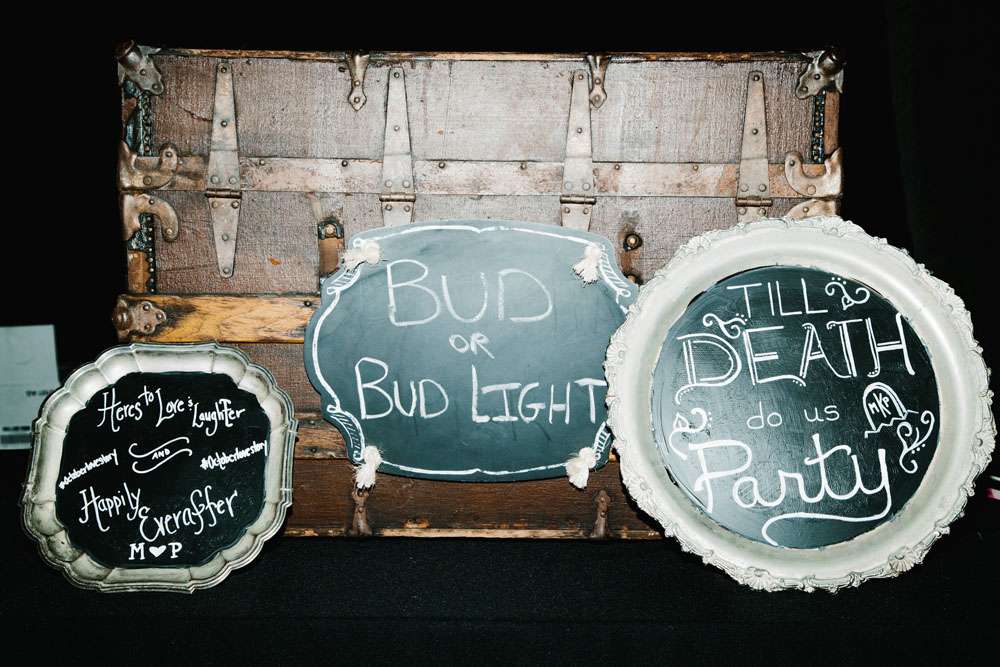 Heres to Love & Laughter
AND
#Octoberlovestory
#Octoberlovestory
Happily
Everafter
M ♥ P
BUD
OR
BUD LIGHT
TILL
DEATH
do us
Party